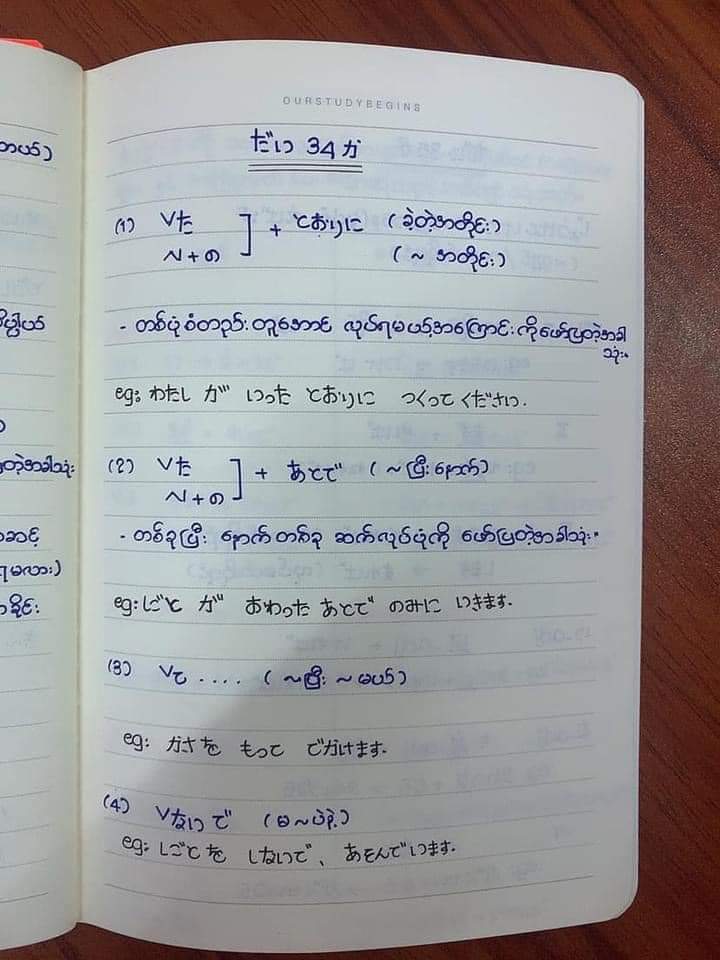 OURSTUDYBEGINS
だい 34 か
(1) Vた
N+の ] + とおりに (ခဲ့တဲ့အတိုင်း)
(~ အတိုင်း)
- တစ်ပုံစံတည်း တူအောင် လုပ်ရမယ့်အကြောင်းကို ဖော်ပြတဲ့အခါ
သုံး။
eg: わたし が いった とおりに つくって ください.
(2) Vた
N+の ] + あとで (~ ပြီးနောက်)
- တစ်ခုပြီး နောက်တစ်ခု ဆက်လုပ်ပုံကို ဖော်ပြတဲ့အခါသုံး။
eg: しごと が おわった あとで のみに いきます.
(3) Vて .... ( ~ပြီး ~မယ်)
eg: かさを もって でかけます.
(4) Vないで (မ ~ပဲနဲ့)
eg: しごとを しないで、 あそんでいます.